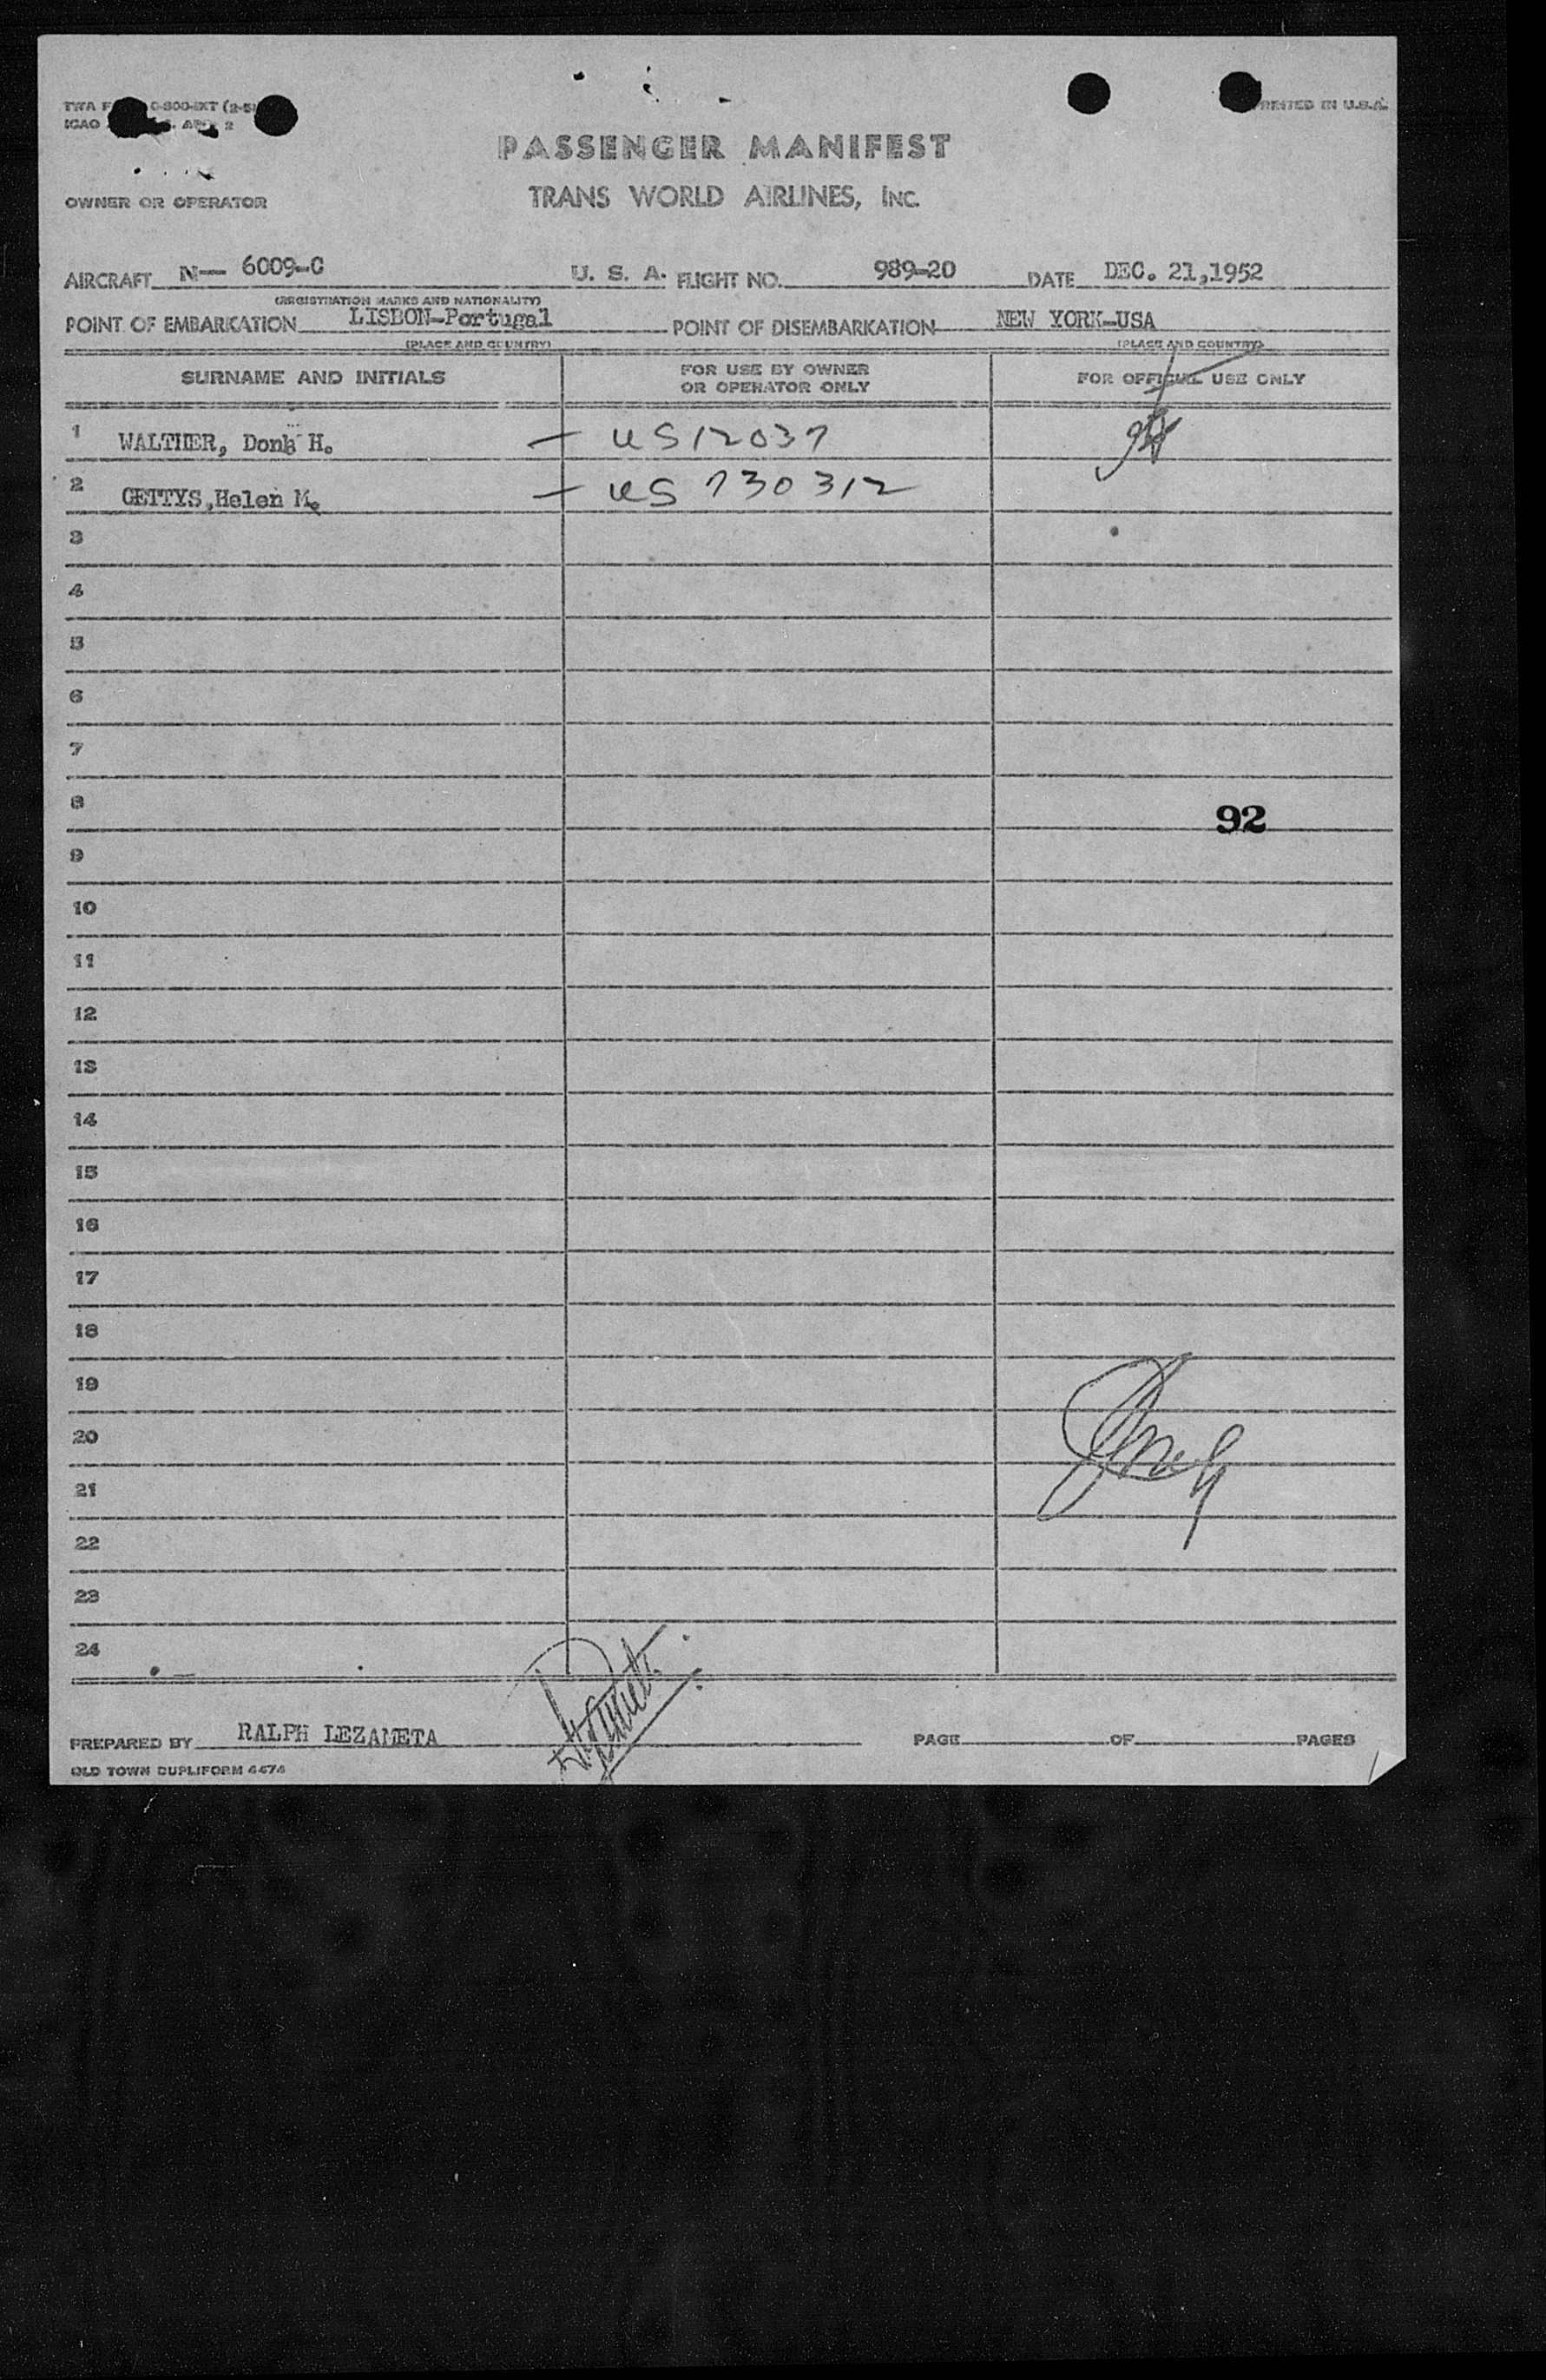 PRINTED IN U.S.A.
PASSENGER MANIFEST
OWNER OR OPERATOR TRANS WORLD AIRLINES, INC.
AIRCRAFT N— 6009-C U. S. A. FLIGHT NO. 989-20 DATE DEC. 21,1952
(REGISTRATION MARKS AND NATIONALITY)
POINT OF EMBARKATION LISBON-Portugal POINT OF DISEMBARKATION NEW YORK-USA
(PLACE AND COUNTRY) (PLACE AND COUNTRY)
SURNAME AND INITIALS FOR USE BY OWNER OR OPERATOR ONLY FOR OFFICIAL USE ONLY
1 WALTHER, H. — US 12037
2 GETTYS, Helen M. — US 730312
3
4
5
6
7
8 92
9
10
11
12
13
14
15
16
17
18
19
20
21
22
23
24
PREPARED BY RALPH LEZAMETA PAGE OF PAGES
OLD TOWN DUPLIFORM 4474